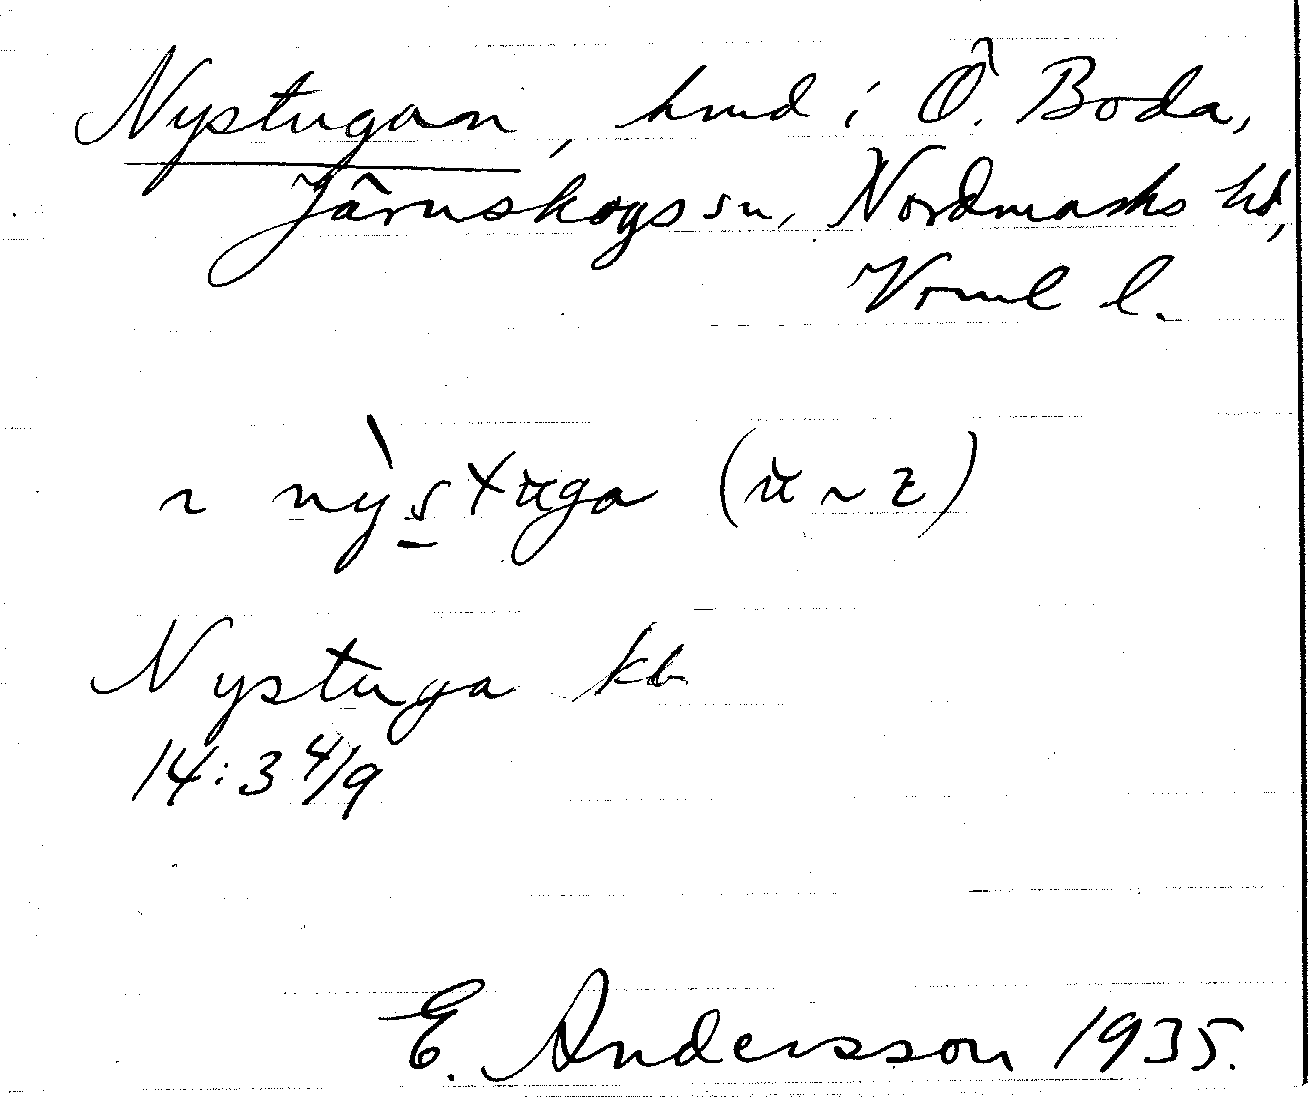 Nystugan, hmd i Ö. Boda,
Järnskogs sn, Nordmarks hd,
Vrml l.
~ ny̖stuga (u ~ z)
Nystuga kb
14:3 4/9
E. Andersson 1935.